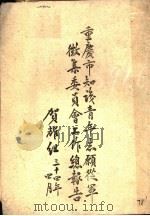 重慶市知識青年志願從軍
徵集委員會工作總報告
賀耀組 三十四年
四月